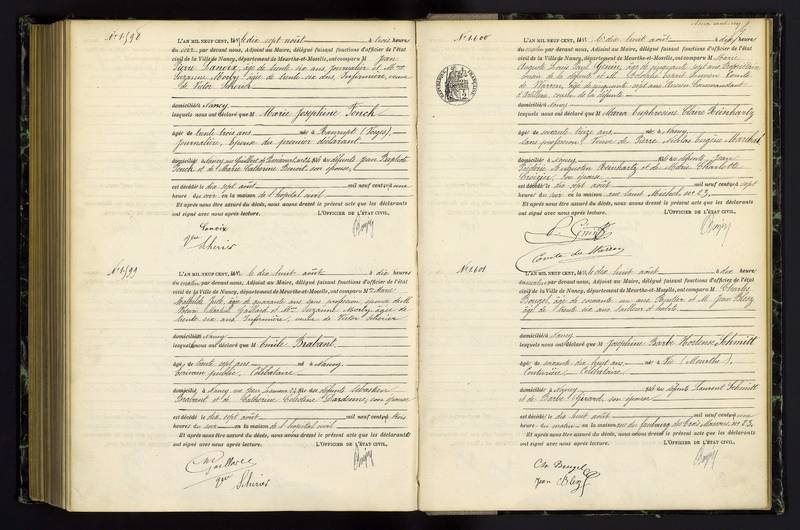 N° 1598
L'AN MIL NEUF CENT, le dix sept août à trois heures
du soir par devant nous, Adjoint au Maire, délégué faisant fonctions d'officier de l'état
civil de la Ville de Nancy, département de Meurthe-et-Moselle, ont comparu M Jean
Pierre âgé de trente six ans journalier et Mme
Suzanne Morly âgée de trente six ans, Infirmière, veuve
de Victor Scherier
domiciliés à Nancy
lesquels nous ont déclaré que M Marie Joséphine Fonck
âgée de trente trois ans née à (Vosges),
journalière, épouse du premier déclarant
domiciliée à Nancy fille de défunts Jean Baptiste
Fonck et de Marie Catherine son épouse,
est décédée le dix sept août mil neuf cent, à une
heure du soir en la maison de l'hôpital civil
Et après nous être assuré du décès, nous avons dressé le présent acte que les déclarants
ont signé avec nous après lecture. L'OFFICIER DE L'ÉTAT CIVIL,
Vve Scherier
N° 1599
L'AN MIL NEUF CENT, le dix huit août à dix heures
du matin par devant nous, Adjoint au Maire, délégué faisant fonctions d'officier de l'état
civil de la Ville de Nancy, département de Meurthe-et-Moselle, ont comparu Mme Marie
Mathilde âgée de quarante ans sans profession, épouse de M
Henri Gaillard et Mme Suzanne Morly âgée de
trente six ans Infirmière, veuve de Victor Scherier
domiciliés à Nancy
lesquels nous ont déclaré que M Emile Brabant
âgé de trente sept ans né à Nancy
écrivain public, Célibataire
domicilié à Nancy fils de défunts Sébastien
Brabant et de Catherine Célestine Dardenne, son épouse
est décédé le dix sept août mil neuf cent, à trois
heures du soir en la maison de l'hôpital civil
Et après nous être assuré du décès, nous avons dressé le présent acte que les déclarants
ont signé avec nous après lecture. L'OFFICIER DE L'ÉTAT CIVIL,
Vve Scherier
N° 1600
L'AN MIL NEUF CENT, le dix huit août à dix heures
du matin par devant nous, Adjoint au Maire, délégué faisant fonctions d'officier de l'état
civil de la Ville de Nancy, département de Meurthe-et-Moselle, ont comparu M Marie
Auguste Louis Paul âgé de cinquante sept ans Propriétaire
de la défunte et M Comte
de Warren, âgé de cinquante sept ans Ancien Commandant
d'Artillerie, cousin de la défunte
domiciliés à Nancy
lesquels nous ont déclaré que M Maria Euphrosine Claire Reinhartz
âgée de soixante treize ans née à Nancy
sans profession, Veuve de Pierre Nicolas Eugène Marchal
domiciliée à Nancy fille de défunts Jean
Frédéric Augustin Reinhartz et de Marie Charlotte
son épouse
est décédée le dix sept août mil neuf cent, à sept
heures du soir en la maison rue Saint Michel no 23
Et après nous être assuré du décès, nous avons dressé le présent acte que les déclarants
ont signé avec nous après lecture. L'OFFICIER DE L'ÉTAT CIVIL,
Comte de Warren
N° 1601
L'AN MIL NEUF CENT, le dix huit août à dix heures
du matin par devant nous, Adjoint au Maire, délégué faisant fonctions d'officier de l'état
civil de la Ville de Nancy, département de Meurthe-et-Moselle, ont comparu M Charles
Bruzel, âgé de soixante un ans et M Jean
âgé de trente six ans tailleur d'habits
domiciliés à Nancy
lesquels nous ont déclaré que M Joséphine Barbe Hortense Schmitt
âgée de soixante dix huit ans née à Vic (Meurthe),
Couturière, Célibataire
domiciliée à Nancy fille de défunts Laurent Schmitt
et de Barbe Girard, son épouse
est décédée le dix huit août mil neuf cent, à une
heure du matin en la maison du faubourg des trois Maisons no 83
Et après nous être assuré du décès, nous avons dressé le présent acte que les déclarants
ont signé avec nous après lecture. L'OFFICIER DE L'ÉTAT CIVIL,
Ch Bruzel
Jean